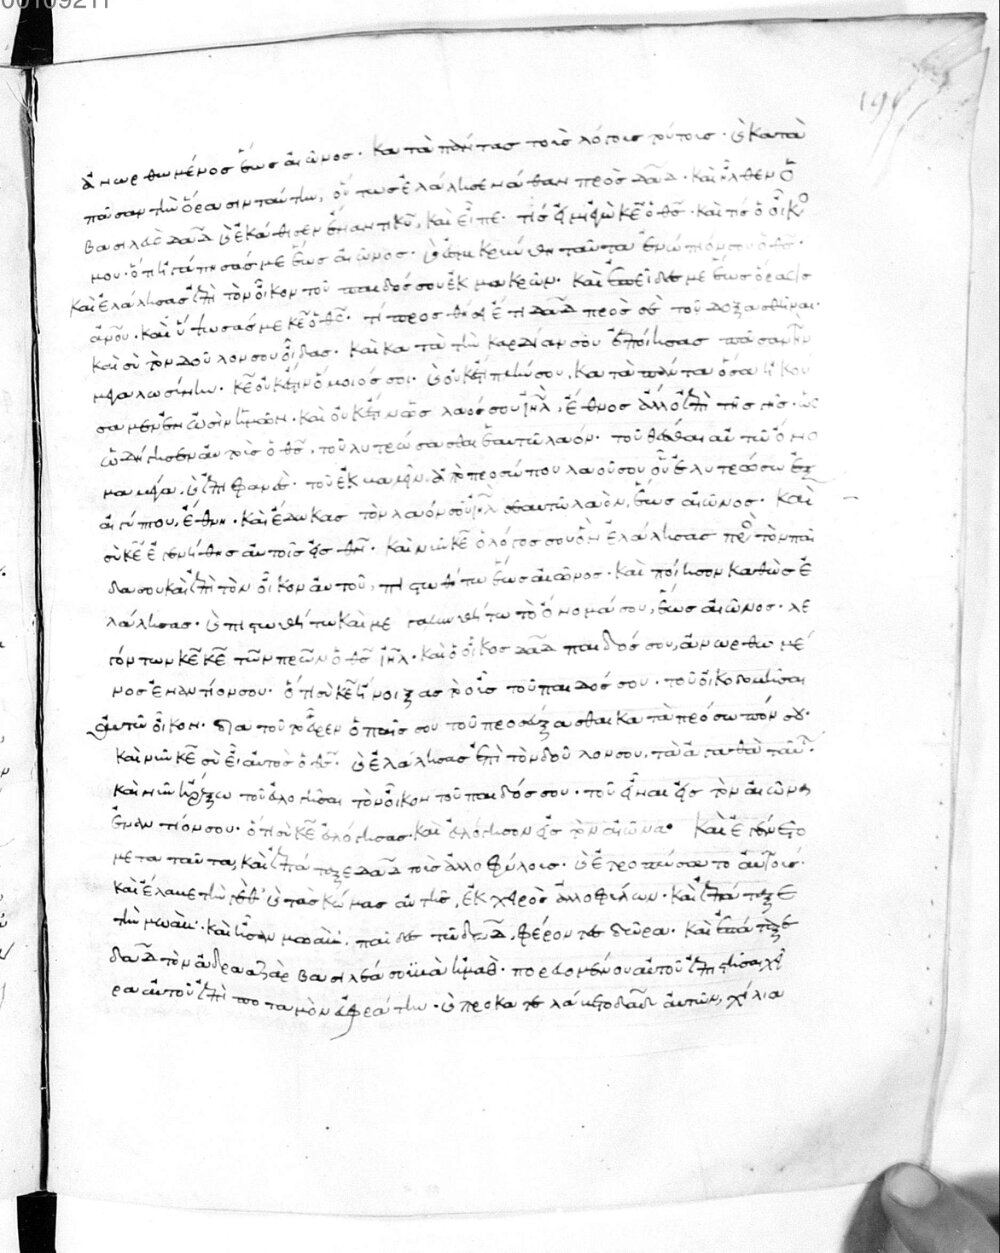 00109211
199
ἀνωρθωμένος ἕως αἰῶνος. κατὰ πάντας τοὺς λόγους τούτους. καὶ κατὰ
πᾶσαν τὴν ὅρασιν ταύτην, οὕτως ἐλάλησε νάθαν πρὸς δαδ. καὶ ἦλθεν ὁ
βασιλεὺς δαδ καὶ ἐκάθισεν ἐναντι κυ, καὶ εἶπε. τίς εἰμι ἐγὼ κε ὁ θς. καὶ τίς ὁ οἶκός
μου. ὅτι ἠγάπησάς με ἕως αἰῶνος. καὶ ταῦτα ἐνώπιόν σου ὁ θς.
καὶ ἐλάλησας ἐπὶ τὸν οἶκον τοῦ παιδός σου ἐκ μακρῶν. καὶ ἐπεῖδες με ἕως ὁράσεως
ἀνου. καὶ ὕψωσάς με κε ὁ θς. τί προσθήσει ἔτι δαδ πρὸς σὲ τοῦ δοξασθῆναι.
καὶ σὺ τὸν δοῦλόν σου οἶδας. καὶ κατὰ τὴν καρδίαν σου ἐποίησας πᾶσαν τὴν
μεγαλωσύνην. κε οὐκ ἔστιν ὅμοιός σοι. καὶ οὐκ ἔστι πλήν σου. κατὰ πάντα ὅσα ἠκού
σαμεν ἐν ὠσὶν ἡμῶν. καὶ οὐκ ἔστιν ὡς λαός σου ιηλ, ἔθνος ἄλλο ἐπὶ τῆς γῆς. ὡς
ὡδήγησεν αὐτοὺς ὁ θς, τοῦ λυτρώσασθαι ἑαυτῶ λαόν. τοῦ θέσθαι αὐτῶ ὄνο
μα μέγα. καὶ ἐπιφανές. τοῦ ἐκβαλεῖν ἀπὸ προσώπου λαοῦ σου οὓς ἐλυτρώσω ἐξ
αἰγύπτου, ἔθνη. καὶ ἔδωκας τὸν λαόν σου ιηλ ἑαυτῶ λαὸν, ἕως αἰῶνος. καὶ
σὺ κε ἐγενήθης αὐτοῖς εἰς θν. καὶ νῦν κε ὁ λόγος σου ὃν ἐλάλησας πρὸς τὸν παῖ
δα σου καὶ ἐπὶ τὸν οἶκον αὐτοῦ, πιστωθήτω ἕως αἰῶνος. καὶ ποίησον καθὼς ἐ
λάλησας. καὶ πιστωθήτω καὶ μεγαλυνθήτω τὸ ὄνομά σου, ἕως αἰῶνος. λε
γόντων κε κε τῶν ὁ θς ιηλ. καὶ ὁ οἶκος δαδ παιδός σου, ἀνωρθωμέ
νος ἐναντίον σου. ὅτι σὺ κε ἤνοιξας τὸ οὖς τοῦ παιδός σου. τοῦ οἰκοδομῆσαι
αὐτῶ οἶκον. διὰ τοῦτο εὗρεν ὁ παῖς σου τοῦ προσεύξασθαι κατὰ πρόσωπόν σου.
καὶ νῦν κε σὺ εἶ αὐτὸς ὁ θς. καὶ ἐλάλησας ἐπὶ τὸν δοῦλόν σου, τὰ ἀγαθὰ ταῦτα.
καὶ νῦν ἤρξω τοῦ εὐλογῆσαι τὸν οἶκον τοῦ παιδός σου. τοῦ εἶναι εἰς τὸν αἰῶνα
ἐναντίον σου. ὅτι σὺ κε εὐλόγησας. καὶ εὐλόγησον εἰς τὸν αἰῶνα. Καὶ ἐγένετο
μετὰ ταῦτα, καὶ ἐπάταξε δαδ τοὺς ἀλλοφύλους. καὶ ἐτροπώσατο αὐτούς.
καὶ ἔλαβε τὴν γὲθ καὶ τὰς κώμας αὐτῆς, ἐκ χειρὸς ἀλλοφύλων. καὶ ἐπάταξε
τὴν μωάβ. καὶ ἦσαν μωὰβ, παῖδες τῶ δαδ, φέροντες δῶρα. καὶ ἐπάταξε
δαδ τὸν ἀδρααζὰρ βασιλέα σουβὰ ἡμάθ. πορευομένου αὐτοῦ ἐπιστῆσαι χεῖ
ρα αὐτοῦ ἐπὶ ποταμὸν εὐφράτην. καὶ προκατελάβετο δαδ αὐτῶν, χίλια